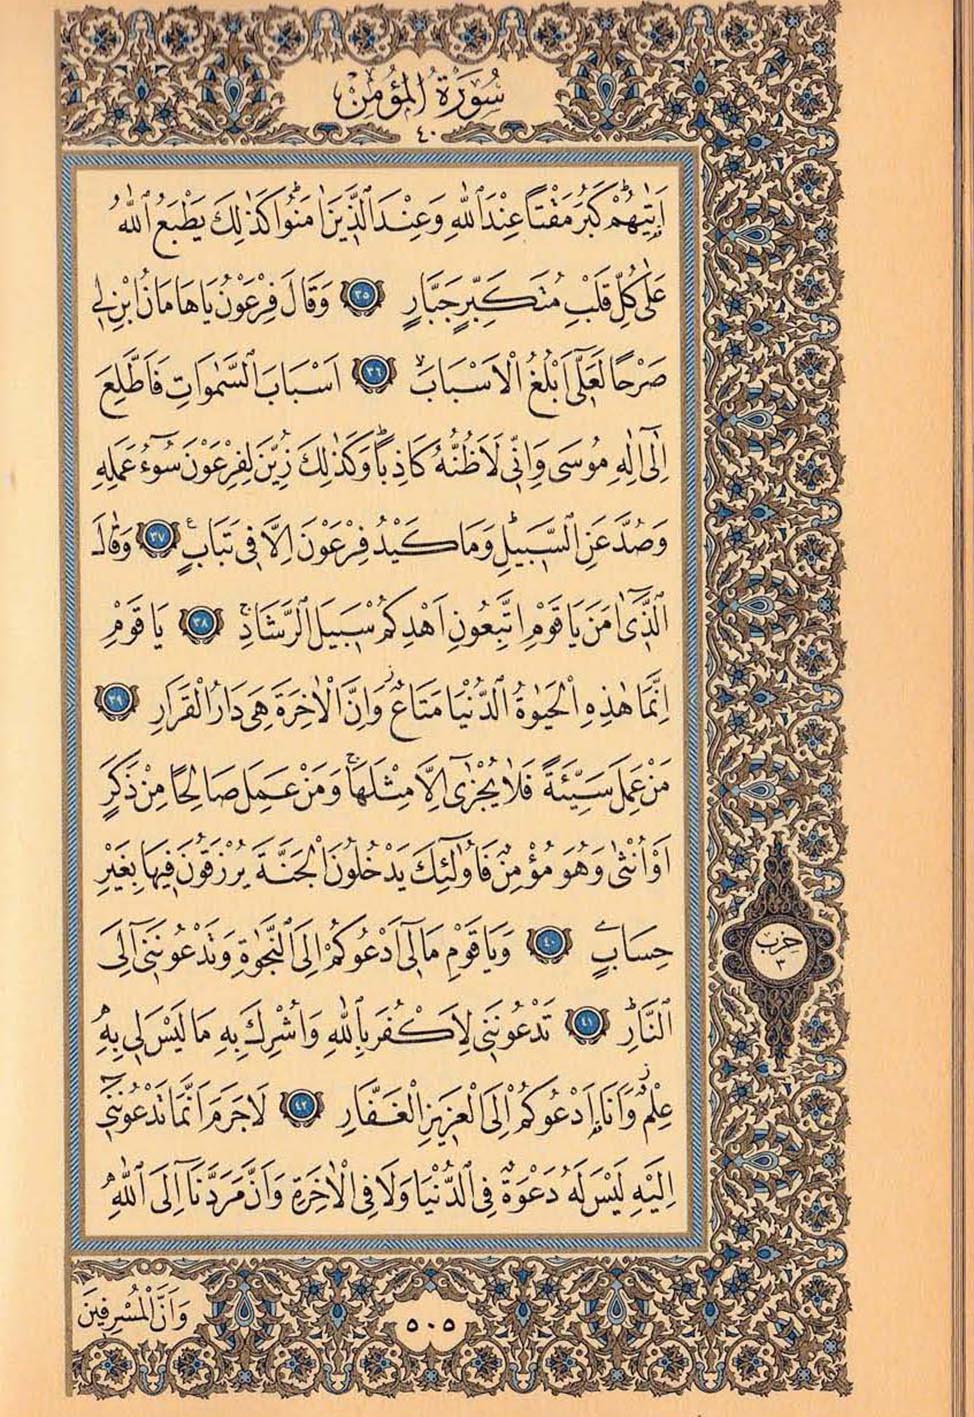 سُورَةُ الْمُؤْمِنِ
٤٠
اَتٰيهُمْ كَبُرَ مَقْتًا عِنْدَ اللّٰهِ وَعِنْدَ الَّذٖينَ اٰمَنُوا كَذٰلِكَ يَطْبَعُ اللّٰهُ
عَلٰى كُلِّ قَلْبِ مُتَكَبِّرٍ جَبَّارٍ ٣٥ وَقَالَ فِرْعَوْنُ يَا هَامَانُ ابْنِ لٖى
صَرْحًا لَعَلّٖٓى اَبْلُغُ الْاَسْبَابَ ٣٦ اَسْبَابَ السَّمٰوَاتِ فَاَطَّلِعَ
اِلٰٓى اِلٰهِ مُوسٰى وَاِنّٖى لَاَظُنُّهُ كَاذِبًا وَكَذٰلِكَ زُيِّنَ لِفِرْعَوْنَ سُٓوءُ عَمَلِهٖ
وَصُدَّ عَنِ السَّبٖيلِ وَمَا كَيْدُ فِرْعَوْنَ اِلَّا فٖى تَبَابٍ ٣٧ وَقَالَ
الَّذٖٓى اٰمَنَ يَا قَوْمِ اتَّبِعُونِ اَهْدِكُمْ سَبٖيلَ الرَّشَادِ ٣٨ يَا قَوْمِ
اِنَّمَا هٰذِهِ الْحَيٰوةُ الدُّنْيَا مَتَاعٌ وَاِنَّ الْاٰخِرَةَ هِىَ دَارُ الْقَرَارِ ٣٩
مَنْ عَمِلَ سَيِّئَةً فَلَا يُجْزٰٓى اِلَّا مِثْلَهَا وَمَنْ عَمِلَ صَالِحًا مِنْ ذَكَرٍ
اَوْ اُنْثٰى وَهُوَ مُؤْمِنٌ فَاُولٰٓئِكَ يَدْخُلُونَ الْجَنَّةَ يُرْزَقُونَ فٖيهَا بِغَيْرِ
حِسَابٍ ٤٠ وَيَا قَوْمِ مَا لٖٓى اَدْعُوكُمْ اِلَى النَّجٰوةِ وَتَدْعُونَنٖٓى اِلَى
النَّارِ ٤١ تَدْعُونَنٖى لِاَكْفُرَ بِاللّٰهِ وَاُشْرِكَ بِهٖ مَا لَيْسَ لٖى بِهٖ
عِلْمٌ وَاَنَا۬ اَدْعُوكُمْ اِلَى الْعَزٖيزِ الْغَفَّارِ ٤٢ لَا جَرَمَ اَنَّمَا تَدْعُونَنٖٓى
اِلَيْهِ لَيْسَ لَهُ دَعْوَةٌ فِى الدُّنْيَا وَلَا فِى الْاٰخِرَةِ وَاَنَّ مَرَدَّنَٓا اِلَى اللّٰهِ
حزب
٣
وَاَنَّ الْمُسْرِفٖينَ
٥٠٥